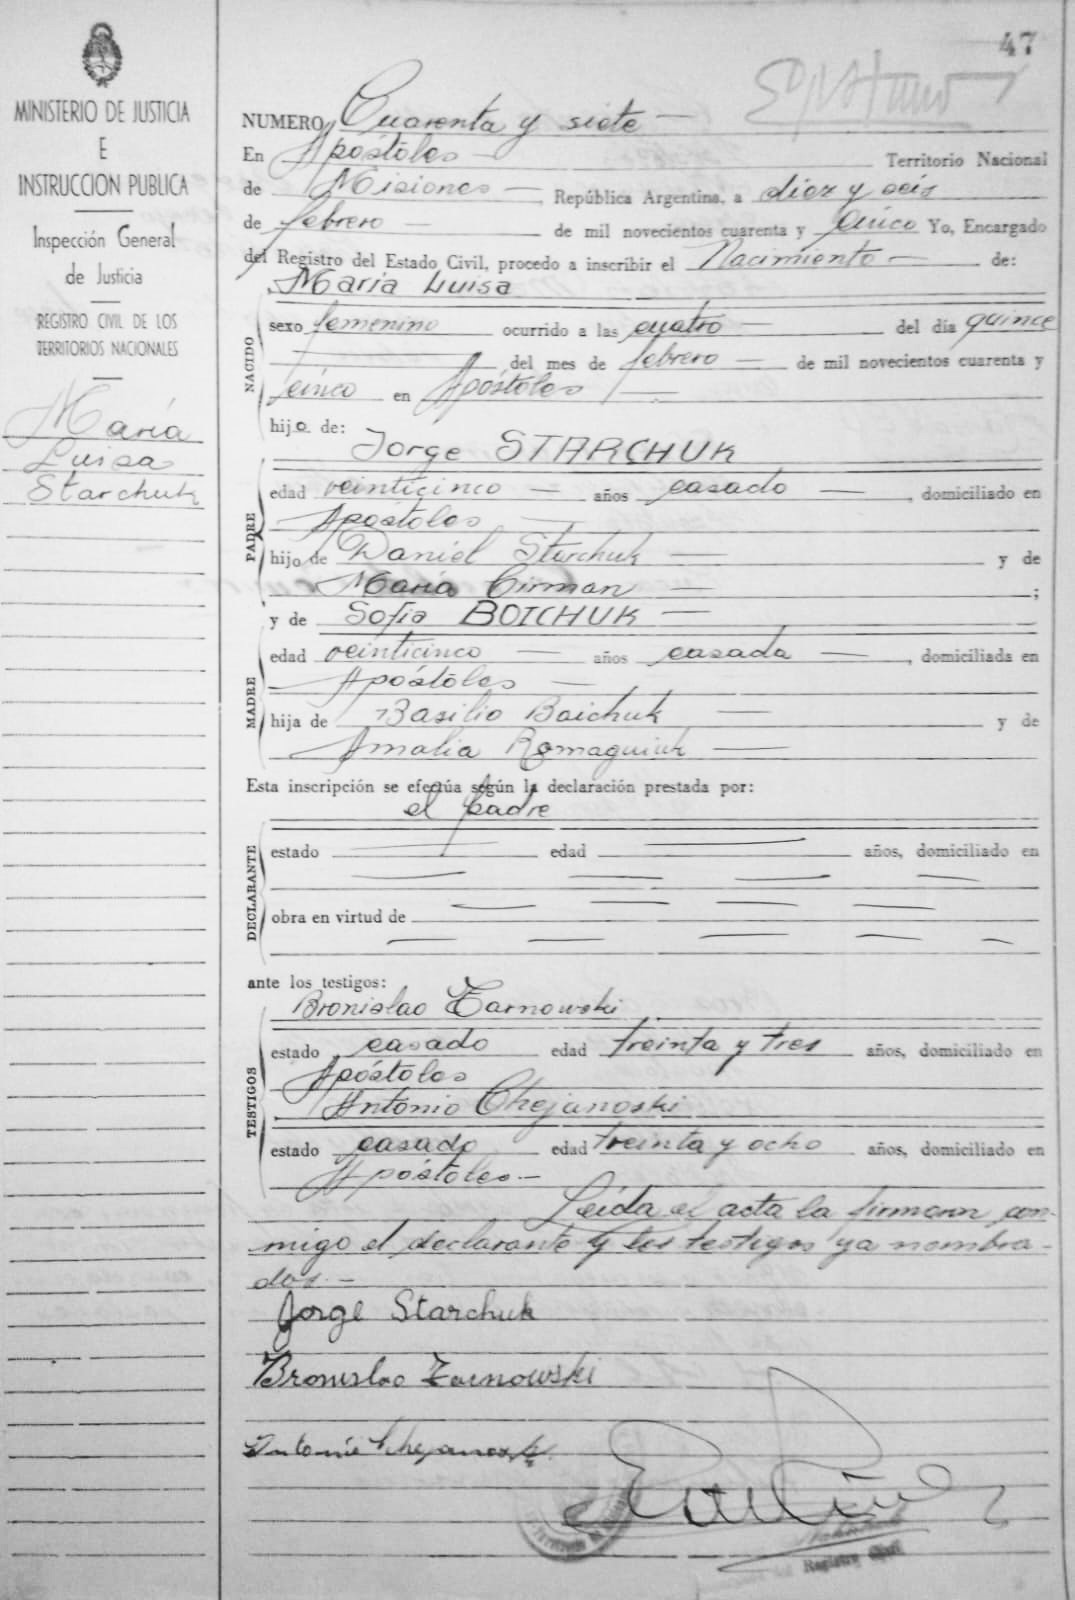 47
MINISTERIO DE JUSTICIA
E
INSTRUCCION PUBLICA
Inspección General
de Justicia
REGISTRO CIVIL DE LOS
TERRITORIOS NACIONALES
María
Luisa
Starchuk
NUMERO Cuarenta y siete —
En Apóstoles — Territorio Nacional
de Misiones —, República Argentina, a diez y seis
de febrero — de mil novecientos cuarenta y cinco Yo, Encargado
del Registro del Estado Civil, procedo a inscribir el Nacimiento — de:
María Luisa
NACIDO
sexo femenino ocurrido a las cuatro — del día quince
— del mes de febrero — de mil novecientos cuarenta y
cinco en Apóstoles —
hijo de:
Jorge STARCHUK
PADRE
edad veinticinco — años casado —, domiciliado en
Apóstoles —
hijo de Daniel Starchuk — y de
María Cirman — ;
y de Sofía BOICHUK —
MADRE
edad veinticinco — años casada —, domiciliada en
Apóstoles —
hija de Basilio Boichuk — y de
Amalia Romaguiuk —
Esta inscripción se efectúa según la declaración prestada por:
el padre
DECLARANTE
estado — edad — años, domiciliado en
— — — —
obra en virtud de — — — —
— — — — —
ante los testigos:
Bronislao Zarnowski
TESTIGOS
estado casado edad treinta y tres años, domiciliado en
Apóstoles
Antonio Chejanoski
estado casado edad treinta y ocho años, domiciliado en
Apóstoles.—
Leída el acta la firmarn con-
migo el declarante y los testigos ya nombra-
dos.—
Jorge Starchuk
Bronislao Zarnowski
Antonio Chejanoski
Registro Civil